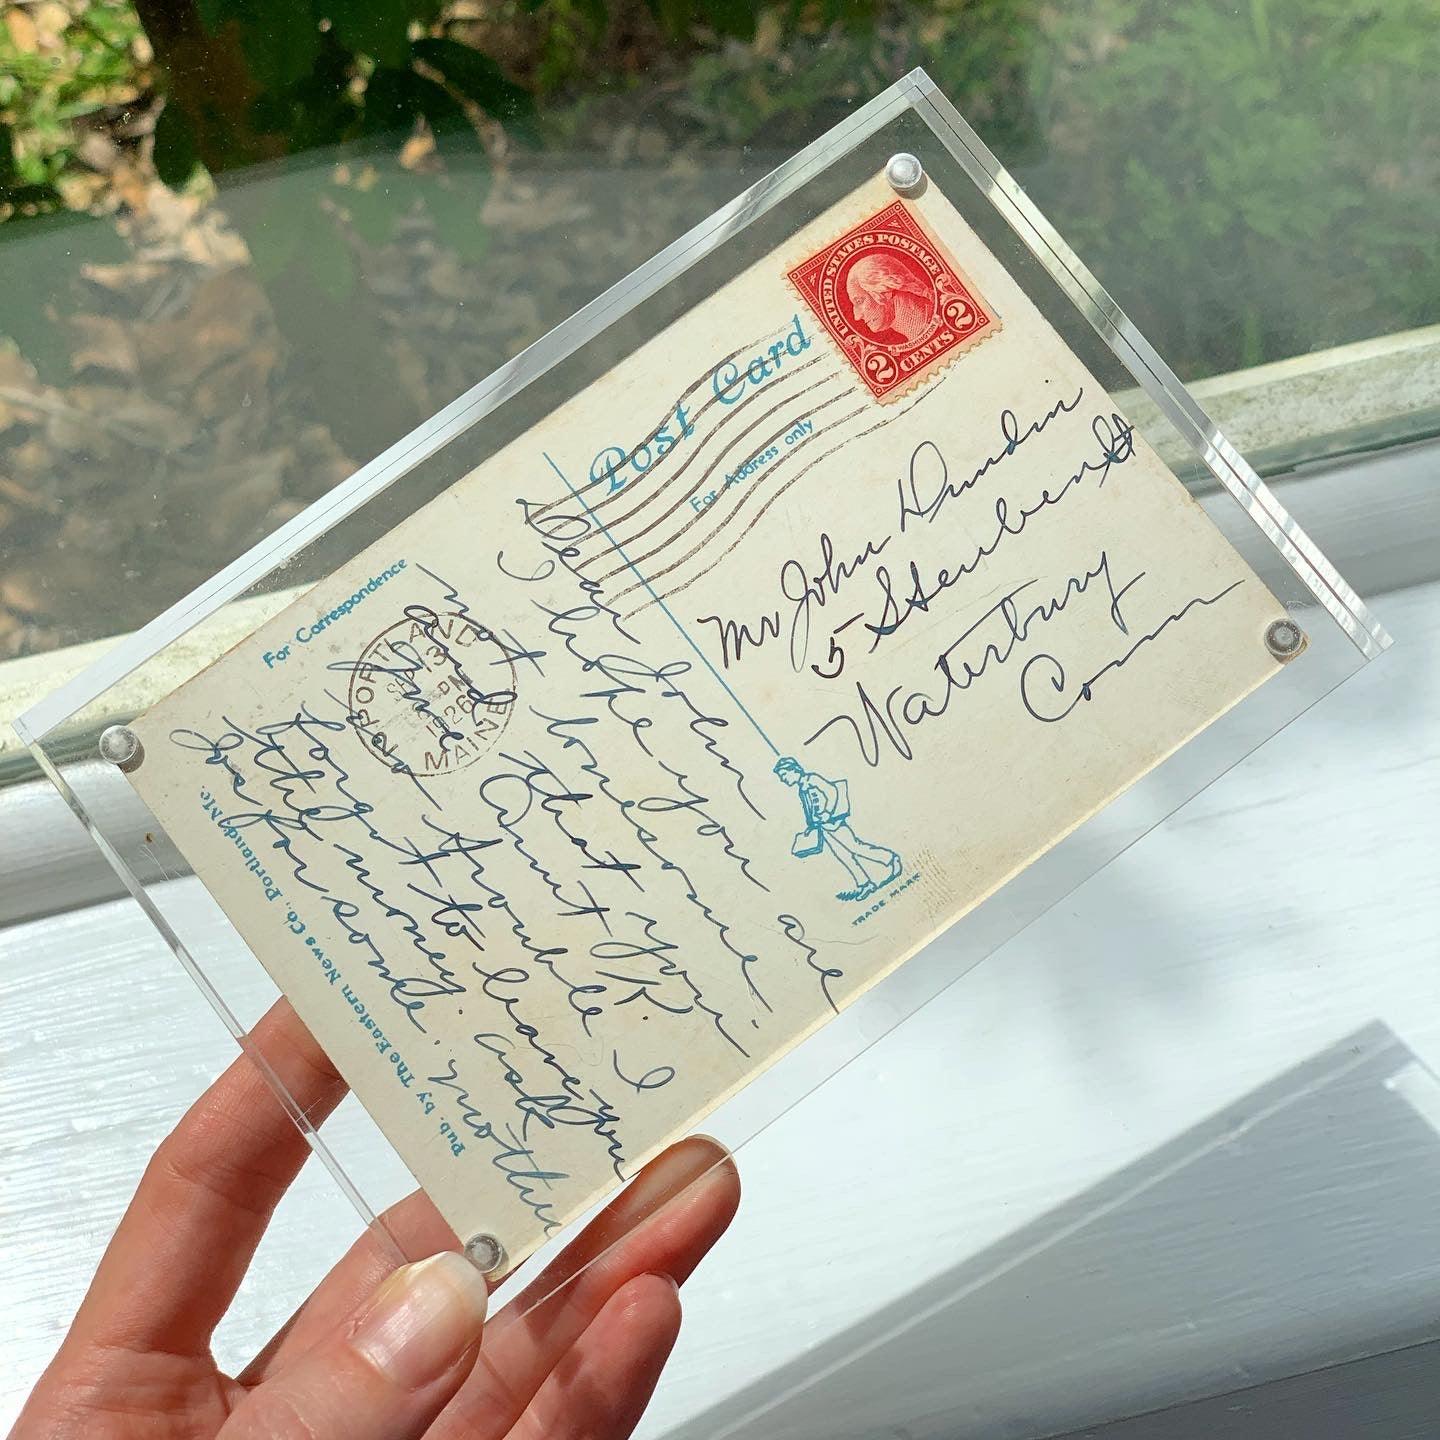 UNITED STATES POSTAGE
WASHINGTON
2 CENTS 2
Post Card
For Address only
For Correspondence
PORTLAND
SEP 13
PM
1926
MAINE
Mr John Dundin
5 Steuben St
Waterbury
Conn
Dear John
I hope you are
not lonesome
and that your
Aunt is
in trouble. I
forgot to leave you
the money. ask
Jos for some. Mother
TRADE MARK
Pub. by The Eastern News Co., Portland, Me.